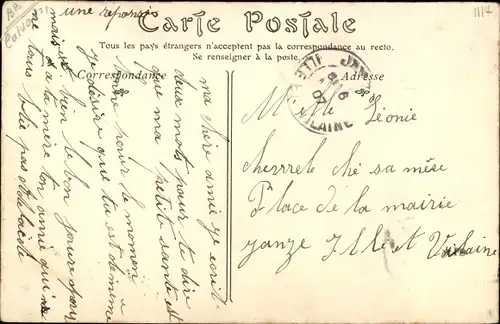 une reponse
Carte Postale
Tous les pays étrangers n'acceptent pas la correspondance au recto.
Se renseigner à la poste.
Correspondance
Adresse
ma chère amie je ecrit
deux mots pour te dire
que ma petite santé est
bonne pour le moment
je désire que tu est de meme
bien le bon jour pour
mais
a ta mère ton amie qui
ne
ILLE ET VILAINE
Melle Léonie
cherrele ché sa mère
Place de la mairie
Janzé Ille et Vilaine
1117